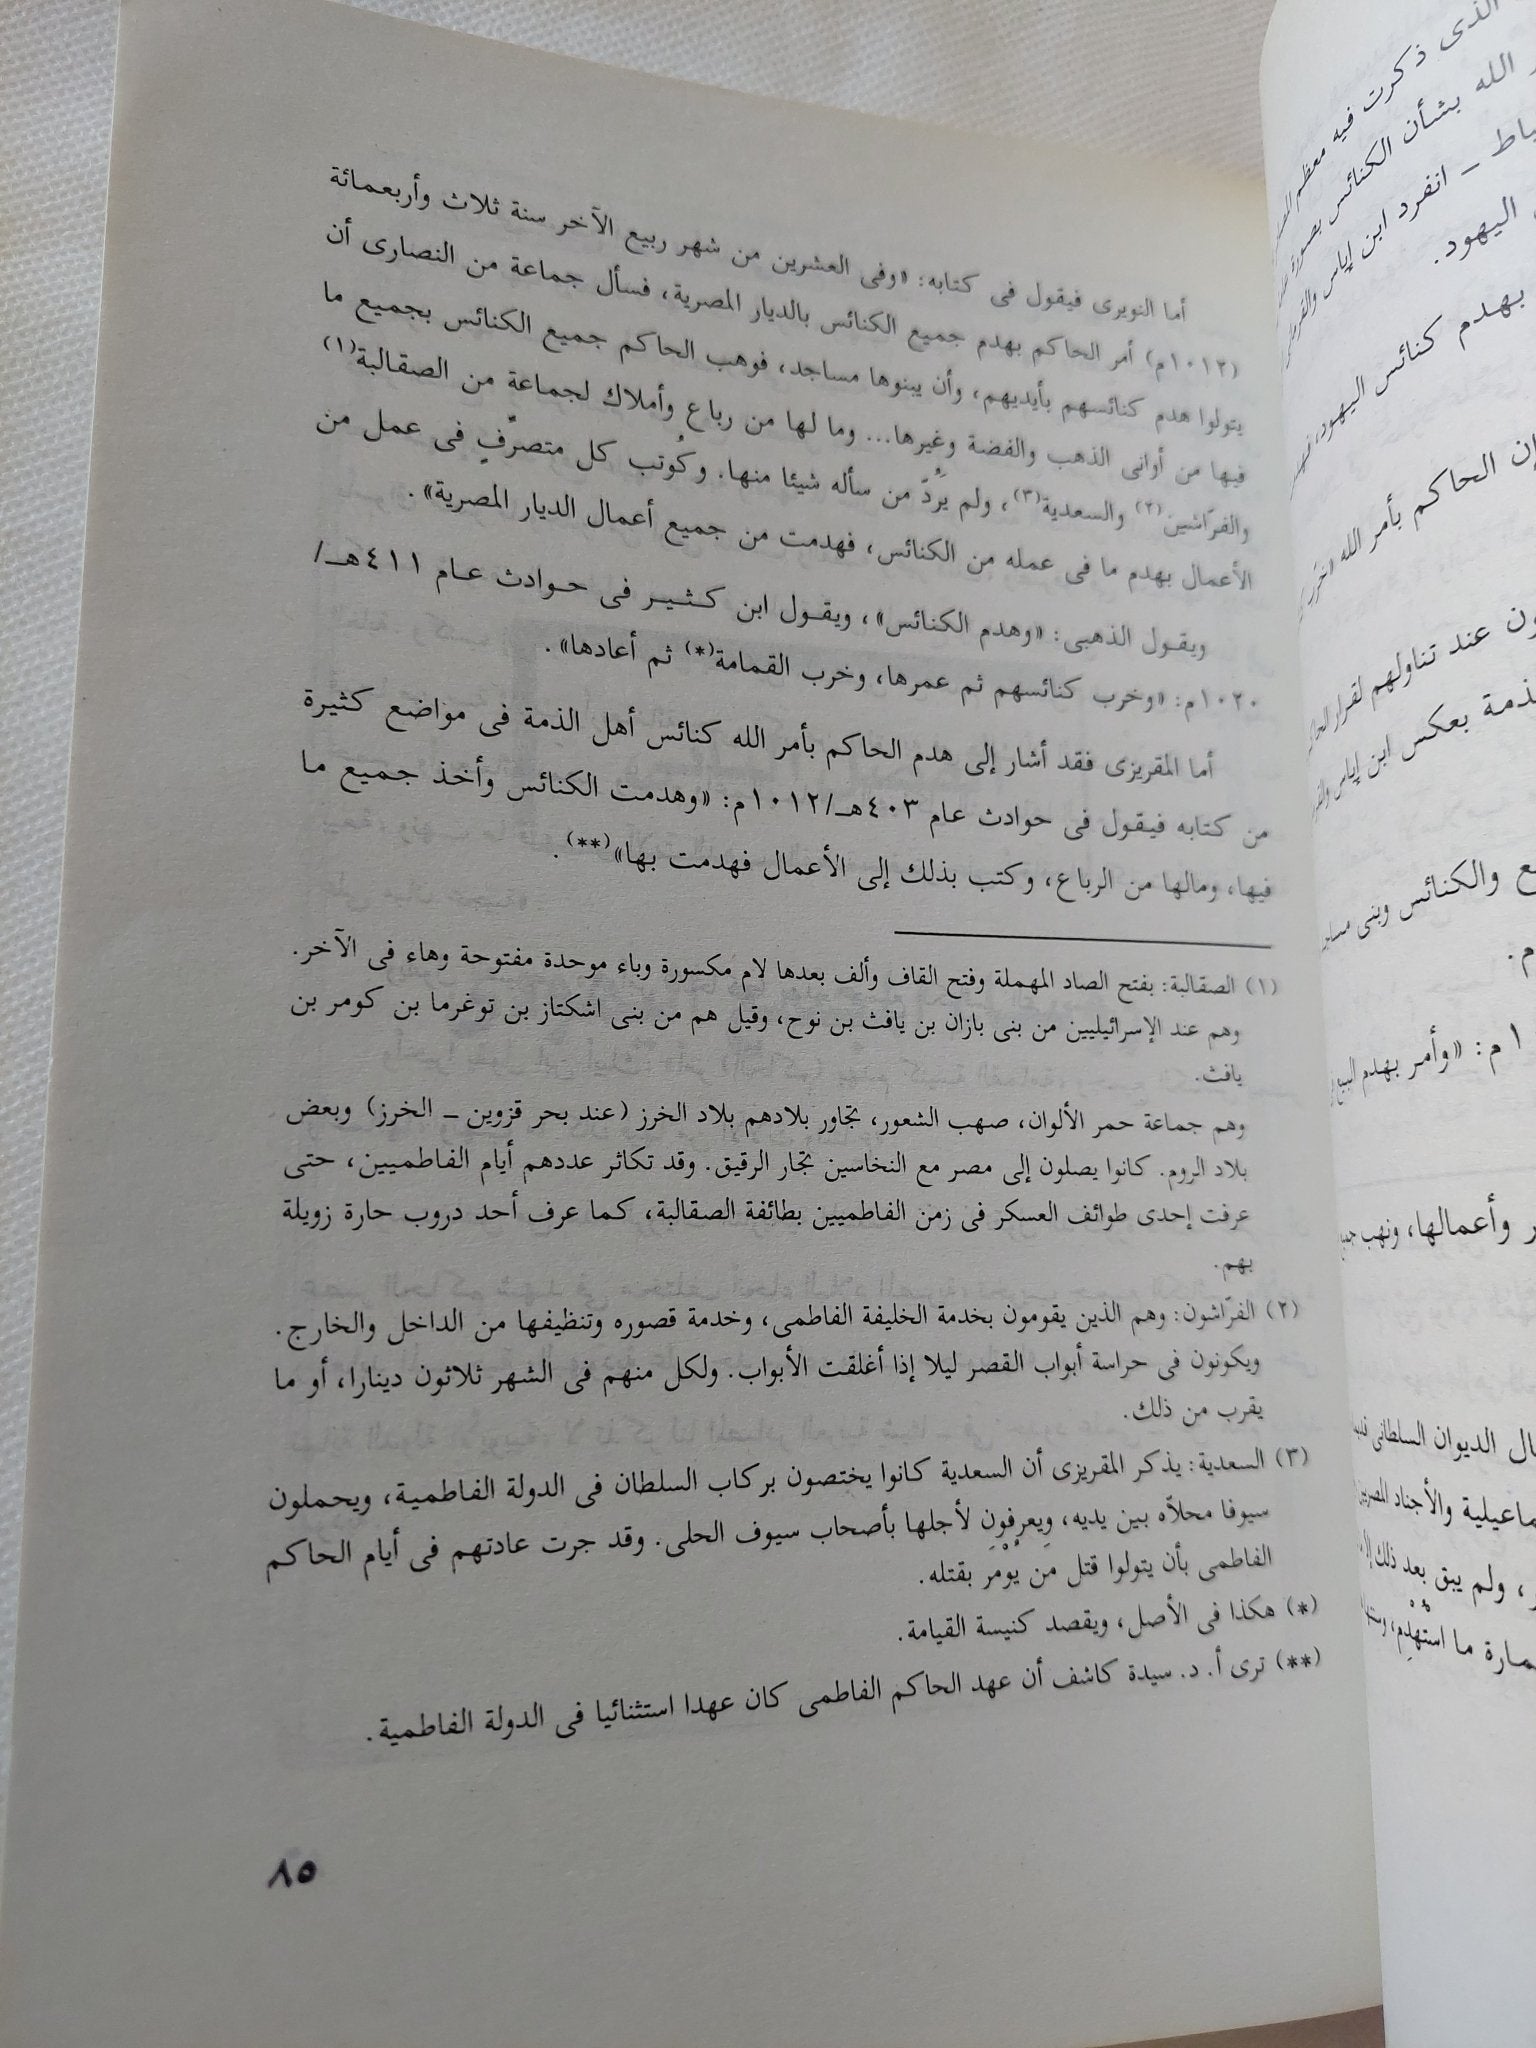 أما النويرى فيقول فى كتابه: «وفى العشرين من شهر ربيع الآخر سنة ثلاث وأربعمائة
(١٠١٢م) أمر الحاكم بهدم جميع الكنائس بالديار المصرية، فسأل جماعة من النصارى أن
يتولوا هدم كنائسهم بأيديهم، وأن يبنوها مساجد، فوهب الحاكم جميع الكنائس بجميع ما
فيها من أوانى الذهب والفضة وغيرها... وما لها من رباع وأملاك لجماعة من الصقالبة(١)
والفرّاشين(٢) والسعدية(٣)، ولم يَرُدّ من سأله شيئا منها. وكُوتب كل متصرّفٍ فى عمل من
الأعمال بهدم ما فى عمله من الكنائس، فهدمت من جميع أعمال الديار المصرية».
ويقول الذهبى: «وهدم الكنائس»، ويقول ابن كثير فى حوادث عام ٤١١هـ/
١٠٢٠م: «وخرب كنائسهم ثم عمرها، وخرب القمامة(*) ثم أعادها».
أما المقريزى فقد أشار إلى هدم الحاكم بأمر الله كنائس أهل الذمة فى مواضع كثيرة
من كتابه فيقول فى حوادث عام ٤٠٣هـ/١٠١٢م: «وهدمت الكنائس وأخذ جميع ما
فيها، ومالها من الرباع، وكتب بذلك إلى الأعمال فهدمت بها»(**).
(١) الصقالبة: بفتح الصاد المهملة وفتح القاف وألف بعدها لام مكسورة وباء موحدة مفتوحة وهاء فى الآخر.
وهم عند الإسرائيليين من بنى بازان بن يافث بن نوح، وقيل هم من بنى اشكتاز بن توغرما بن كومر بن
يافث.
وهم جماعة حمر الألوان، صهب الشعور، تجاور بلادهم بلاد الخرز (عند بحر قزوين ــ الخرز) وبعض
بلاد الروم. كانوا يصلون إلى مصر مع النخاسين تجار الرقيق. وقد تكاثر عددهم أيام الفاطميين، حتى
عرفت إحدى طوائف العسكر فى زمن الفاطميين بطائفة الصقالبة، كما عرف أحد دروب حارة زويلة
بهم.
(٢) الفرّاشون: وهم الذين يقومون بخدمة الخليفة الفاطمى، وخدمة قصوره وتنظيفها من الداخل والخارج.
ويكونون فى حراسة أبواب القصر ليلا إذا أغلقت الأبواب. ولكل منهم فى الشهر ثلاثون دينارا، أو ما
يقرب من ذلك.
(٣) السعدية: يذكر المقريزى أن السعدية كانوا يختصون بركاب السلطان فى الدولة الفاطمية، ويحملون
سيوفا محلاّه بين يديه، ويعرفون لأجلها بأصحاب سيوف الحلى. وقد جرت عادتهم فى أيام الحاكم
الفاطمى بأن يتولوا قتل مَن يُؤْمَر بقتله.
(*) هكذا فى الأصل، ويقصد كنيسة القيامة.
(**) ترى أ. د. سيدة كاشف أن عهد الحاكم الفاطمى كان عهدا استثنائيا فى الدولة الفاطمية.
٨٥
الذى ذكرت فيه معظم
الله بشأن الكنائس بصورة
ــ انفرد ابن إياس
اليهود.
بهدم كنائس اليهود،
إن الحاكم بأمر الله
عند تناولهم لقرار
بعكس ابن إياس
والكنائس وبنى
م.
١ م: «وأمر بهدم البيع
وأعمالها، ونهب
الديوان السلطانى
والأجناد المصريين
، ولم يبق بعد ذلك
ما استُهْدِم،